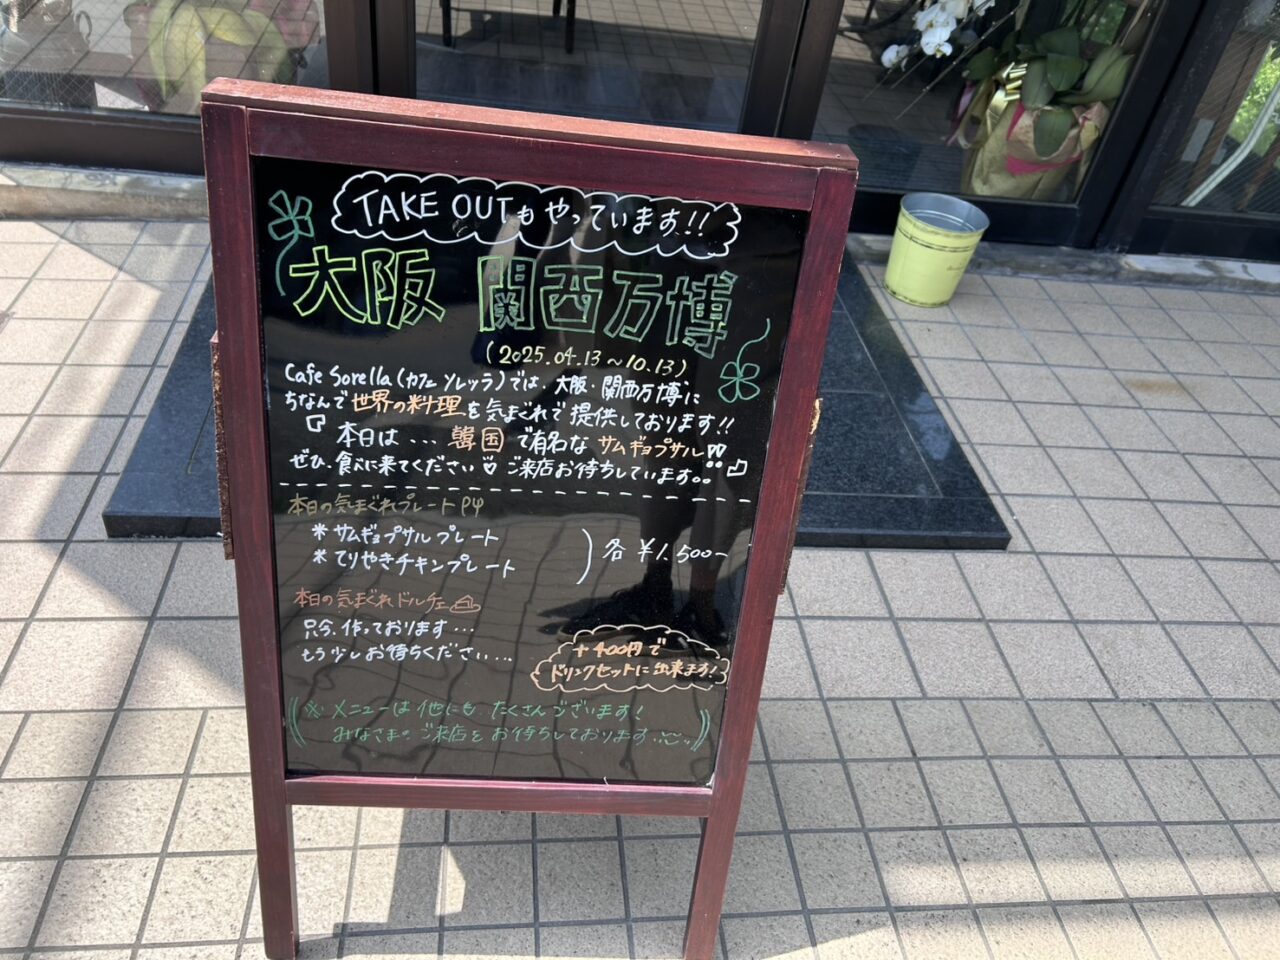 TAKE OUTもやっています!!
大阪 関西万博
(2025.04.13〜10.13)
Cafe Sorella(カフェ ソレッラ)では、大阪・関西万博に
ちなんで世界の料理を気まぐれで提供しております!!
本日は...韓国で有名なサムギョプサル!!
ぜひ、食べに来てください♡ご来店お待ちしています。。
本日の気まぐれプレート
*サムギョプサルプレート
*てりやきチキンプレート
各 ¥1,500-
本日の気まぐれドルチェ
只今、作っております...
もう少しお待ちください...
+400円で
ドリンクセットに出来ます!
※メニューは他にもたくさんございます!
みなさまのご来店をお待ちしております